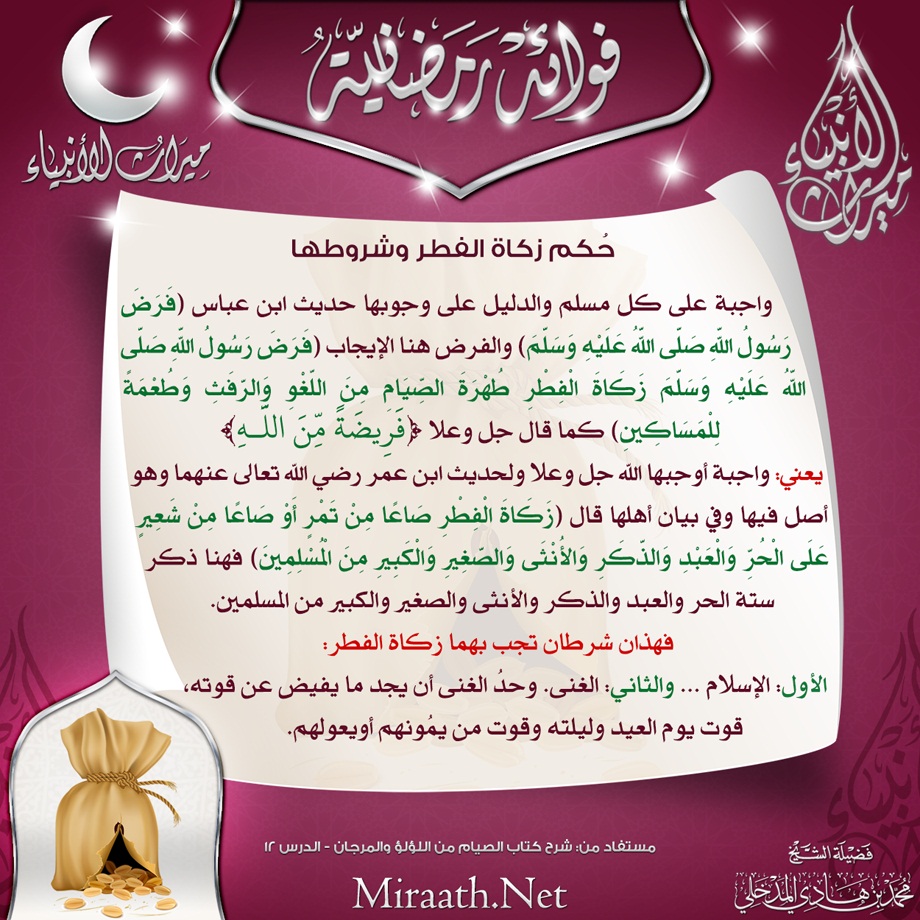 فوائد رمضانية
ميراث الأنبياء
ميراث الأنبياء
حُكم زكاة الفطر وشروطها
واجبة على كل مسلم والدليل على وجوبها حديث ابن عباس (فَرَضَ
رَسُولُ اللَّهِ صَلَّى اللَّهُ عَلَيْهِ وَسَلَّمَ) والفرض هنا الإيجاب (فَرَضَ رَسُولُ اللَّهِ صَلَّى
اللَّهُ عَلَيْهِ وَسَلَّمَ زَكَاةَ الْفِطْرِ طُهْرَة الصِّيَامِ مِنِ اللَّغْوِ وَالرَّفَثِ وَطُعْمةً
لِلْمَسَاكِينِ) كما قال جل وعلا ﴿فَرِيضَةً مِّنَ اللَّـهِ﴾
يعني: واجبة أوجبها الله جل وعلا ولحديث ابن عمر رضي الله تعالى عنهما وهو
أصل فيها وفي بيان أهلها قال (زَكَاةَ الْفِطْرِ صَاعًا مِنْ تَمْرٍ أوْ صَاعًا مِنْ شَعِيرٍ
عَلَى الْحُرِّ وَالْعَبْدِ وَالذَّكَرِ وَالأُنْثَى وَالصَّغيرِ وَالْكَبِيرِ مِنَ الْمُسْلِمِينَ) فهنا ذكر
ستة الحر والعبد والذكر والأنثى والصغير والكبير من المسلمين.
فهذان شرطان تجب بهما زكاة الفطر:
الأول: الإسلام ... والثاني: الغنى. وحدُ الغنى أن يجد ما يفيض عن قوته،
قوت يوم العيد وليلته وقوت من يمُونهم أويعولهم.
مستفاد من: شرح كتاب الصيام من اللؤلؤ والمرجان - الدرس ١٢
Miraath.Net
فضيلة الشيخ
محمد بن هادي المدخلي